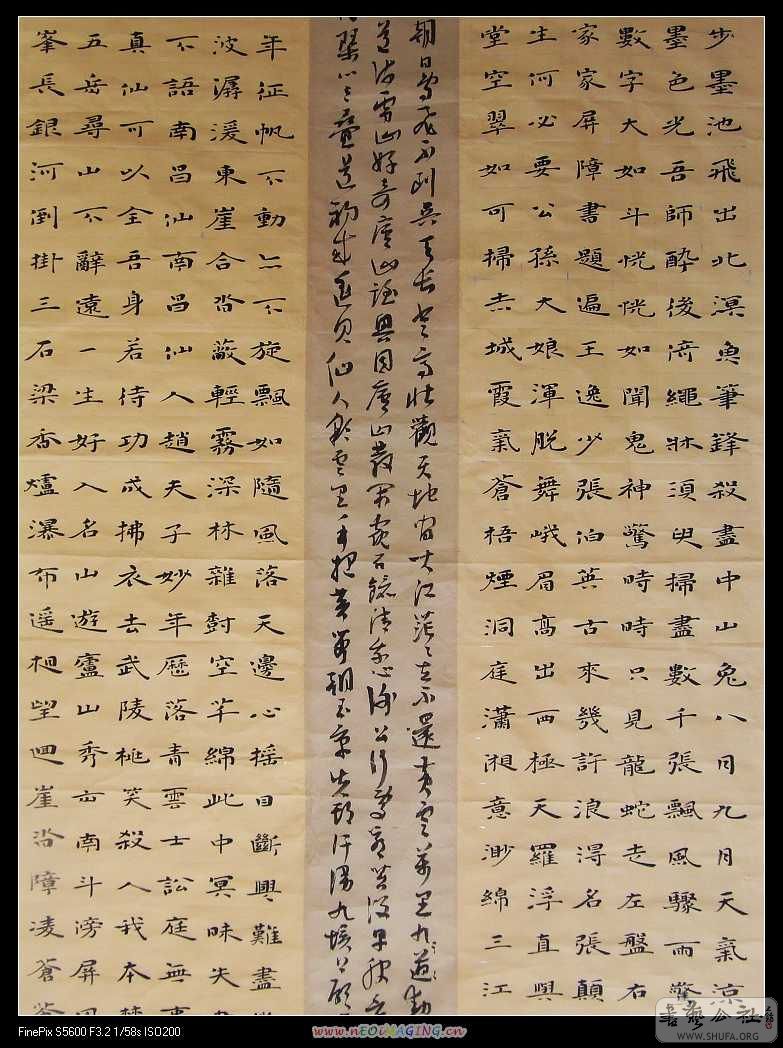 步墨池飛出北溟魚筆鋒殺盡中山兔八月九月天氣涼
墨色光吾師醉後倚繩牀須臾掃盡數千張飄風驟雨驚
數字大如斗恍恍如聞鬼神驚時時只見龍蛇走左盤右
家家屏障書題遍王逸少張伯英古來幾許浪得名張顛
生何必要公孫大娘渾脫舞峨眉高出西極天羅浮直與
堂空翠如可掃赤城霞氣蒼梧煙洞庭瀟湘意渺綿三江
朝日鳥飛不到吳天長登高壯觀天地間大江茫茫去不還黃雲萬里九道動
道流雪山好為廬山謠興因廬山發閑窺石鏡清我心謝公行處蒼苔沒早服
琴心三疊道初成遙見仙人彩雲里手把芙蓉朝玉京先期汗漫九垓上願
年征帆不動亦不旋飄如隨風落天邊心搖目斷興難盡
波潺湲東崖合沓蔽輕霧深林雜對空芊綿此中冥昧失
不語南昌仙南昌仙人趙夫子妙年歷落青雲士訟庭無事
真仙可以全吾身若待功成拂衣去武陵桃笑殺人我本楚
五岳尋山不辭遠一生好入名山遊廬山秀出南斗傍屏
峯長銀河倒掛三石梁香爐瀑布遥相望迴崖沓障凌蒼蒼
FinePix S5600 F3.2 1/58s ISO200
www.nEOiMAGING.cn
書藝公社
WWW.SHUFA.ORG